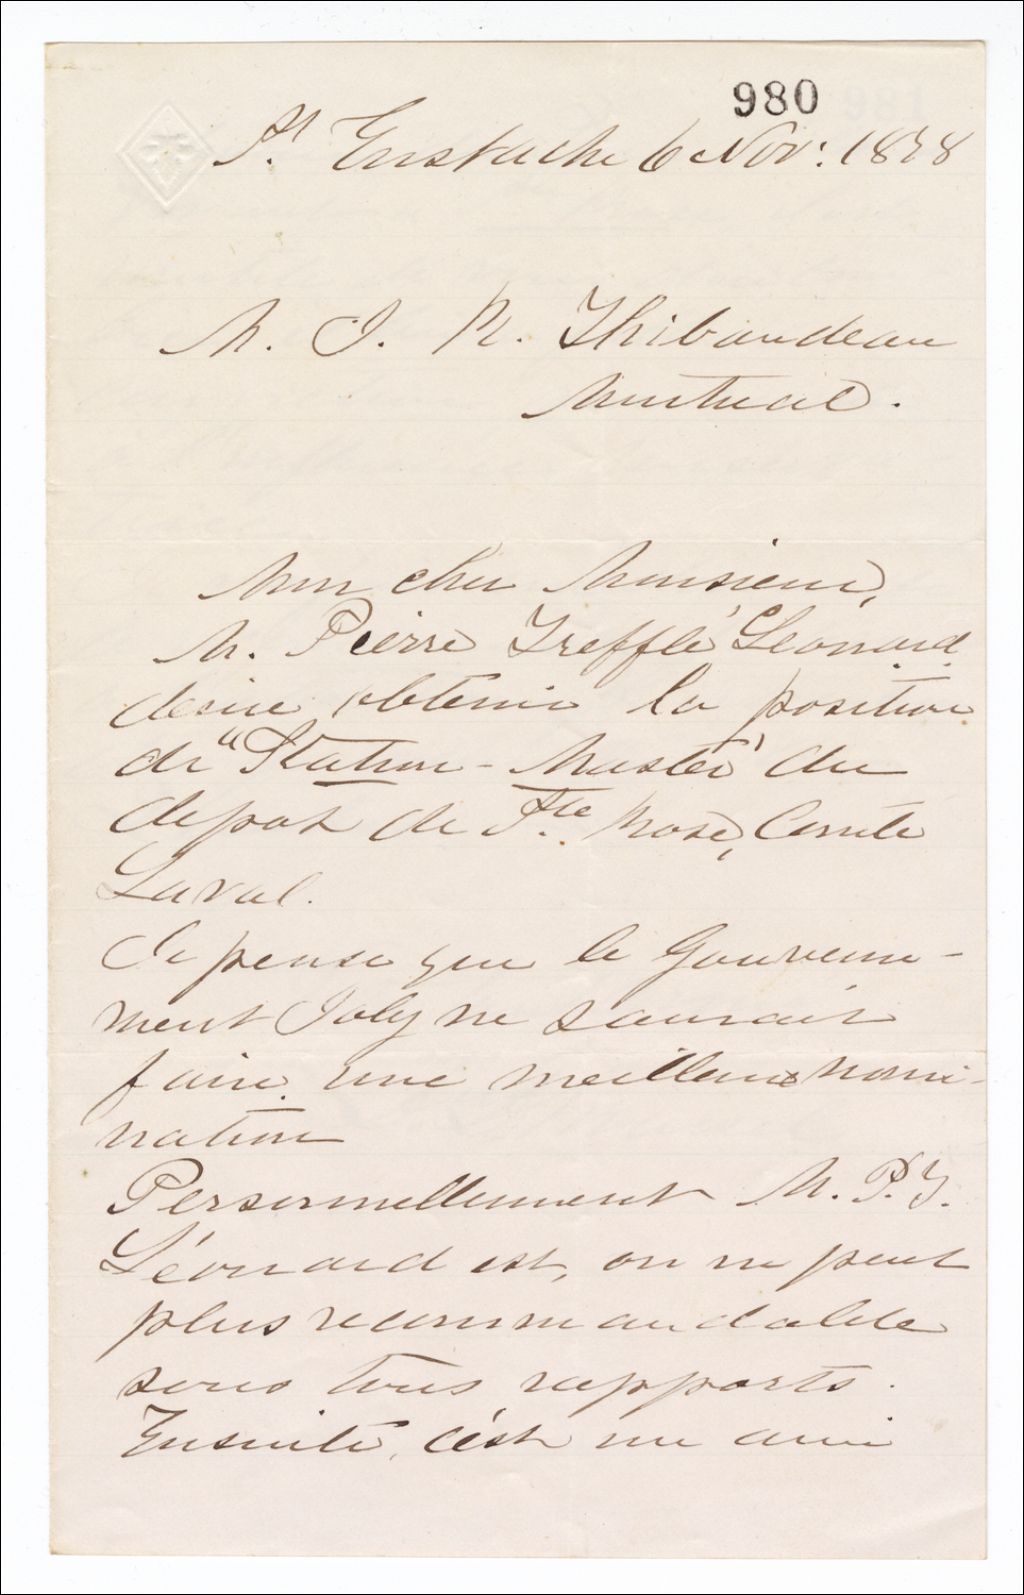 980
St Eustache 6 Nov: 1878
M. J. R. Thibaudeau
Montreal.
Mon cher Monsieur,
M. Pierre Trefflé Léonard
desire obtenir la position
de "Station-Master" du
depot de Ste Rose, Comté
Laval.
Je pense que le Gouverne-
ment Joly ne saurait
faire une meilleure nomi-
nation
Personnellement M. P. T.
Léonard est, on ne peut
plus recommandable
sous tous rapports.
Ensuite, c'est un ami